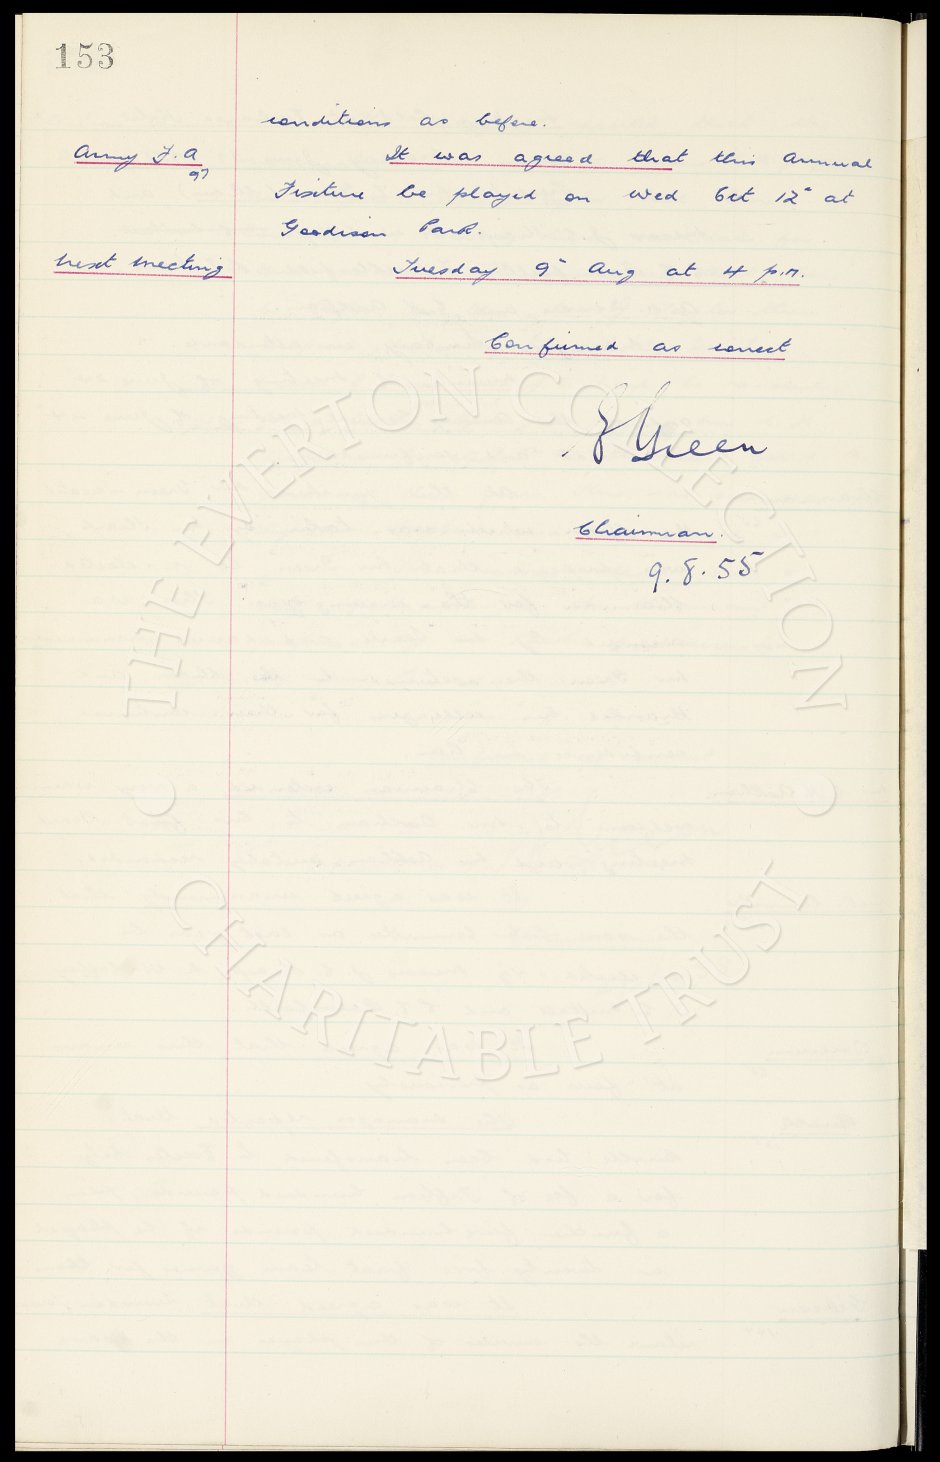 153
conditions as before.
Army F.A It was agreed that this Annual
97
Fixture be played on Wed Oct 12" at
Goodison Park.
Next Meeting Tuesday 9" Aug at 4 p.m.
Confirmed as correct
Green
Chairman.
9.8.55
THE EVERTON COLLECTION
CHARITABLE TRUST